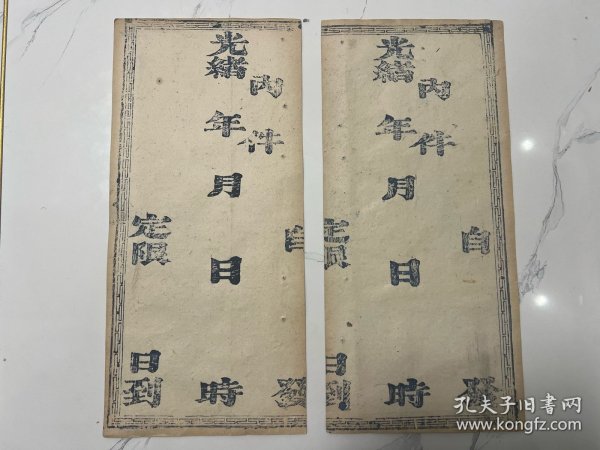 內件
自發
光緒年月日時
定限
日到
內件
自發
光緒年月日時
定限
日到
孔夫子旧書网
www.kongfz.com